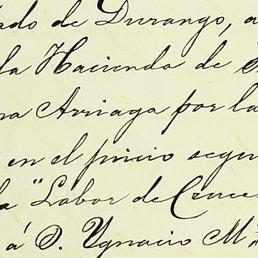 ado de Durango, a
la Hacienda de
na Arriaga por la
en el juicio segui
la "Labor de Cruce
á D. Ygnacio M